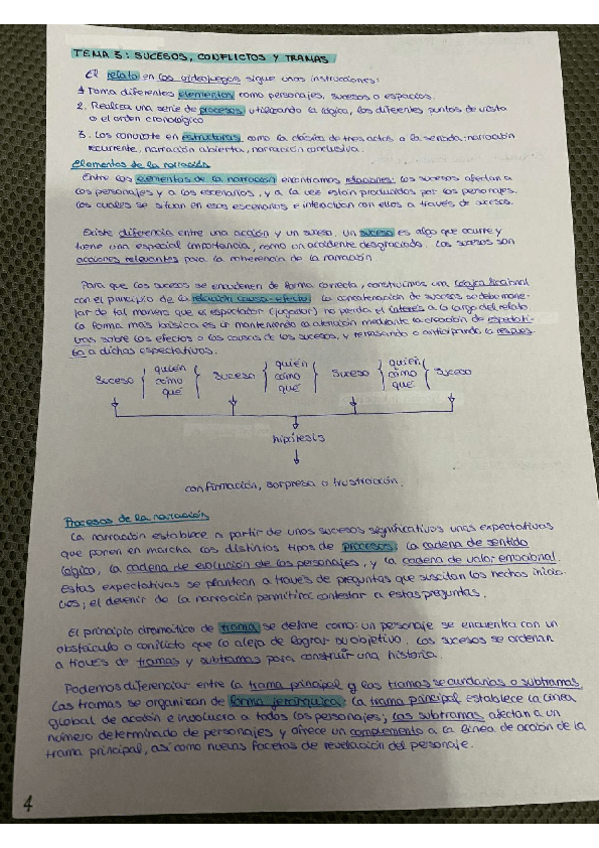 TEMA 3: SUCESOS, CONFLICTOS Y TRAMAS
El relato en los videojuegos sigue unas instrucciones:
1 Toma diferentes elementos como personajes, sucesos o espacios.
2. Realiza una serie de procesos utilizando la lógica, los diferentes puntos de vista
o el orden cronológico
3. Los convierte en estructuras como la clásica de tres actos o la seriada: narración
recurrente, narración abierta, narración conclusiva.
Elementos de la narración
Entre los elementos de la narración encontramos relaciones: los sucesos afectan a
los personajes y a los escenarios, y a la vez están producidos por los personajes.
los cuales se sitúan en esos escenarios e interactúan con ellos a través de sucesos.
Existe diferencia entre una acción y un suceso. Un suceso es algo que ocurre y
tiene una especial importancia, como un accidente desgraciado. Los sucesos son
acciones relevantes para la coherencia de la narración.
Para que los sucesos se encadenen de forma correcta, construimos una lógica
con el principio de la relación causa-efecto. La concatenación de sucesos se debe mane-
jar de tal manera que el espectador (jugador) no pierda el interés a lo largo del relato
La forma más básica es ir manteniendo la atención mediante la creación de expectati-
vas sobre los efectos o las causas de los sucesos, y retrasando o anticipando la respues
ta a dichas expectativas.
suceso { quién cómo qué { suceso } quién cómo qué { suceso { quién cómo qué { suceso
hipótesis
confirmación, sorpresa o frustración.
Procesos de la narración
La narración establece a partir de unos sucesos significativos unas expectativas
que ponen en marcha los distintos tipos de procesos: la cadena de sentido
lógico, la cadena de evolución de los personajes, y la cadena de valor emocional.
Estas expectativas se plantean a través de preguntas que suscitan los hechos inicia-
les; el devenir de la narración permitirá contestar a estas preguntas.
El principio dramático de trama se define como: un personaje se encuentra con un
obstáculo o conflicto que lo aleja de lograr su objetivo. Los sucesos se ordenan
a través de tramas y subtramas para construir una historia.
Podemos diferenciar entre la trama principal y las tramas secundarias o subtramas
Las tramas se organizan de forma jerárquica: la trama principal establece la línea
global de acción e involucra a todos los personajes; las subtramas afectan a un
número determinado de personajes y ofrece un complemento a la línea de acción de la
trama principal, así como nuevas facetas de revelación del personaje.
4